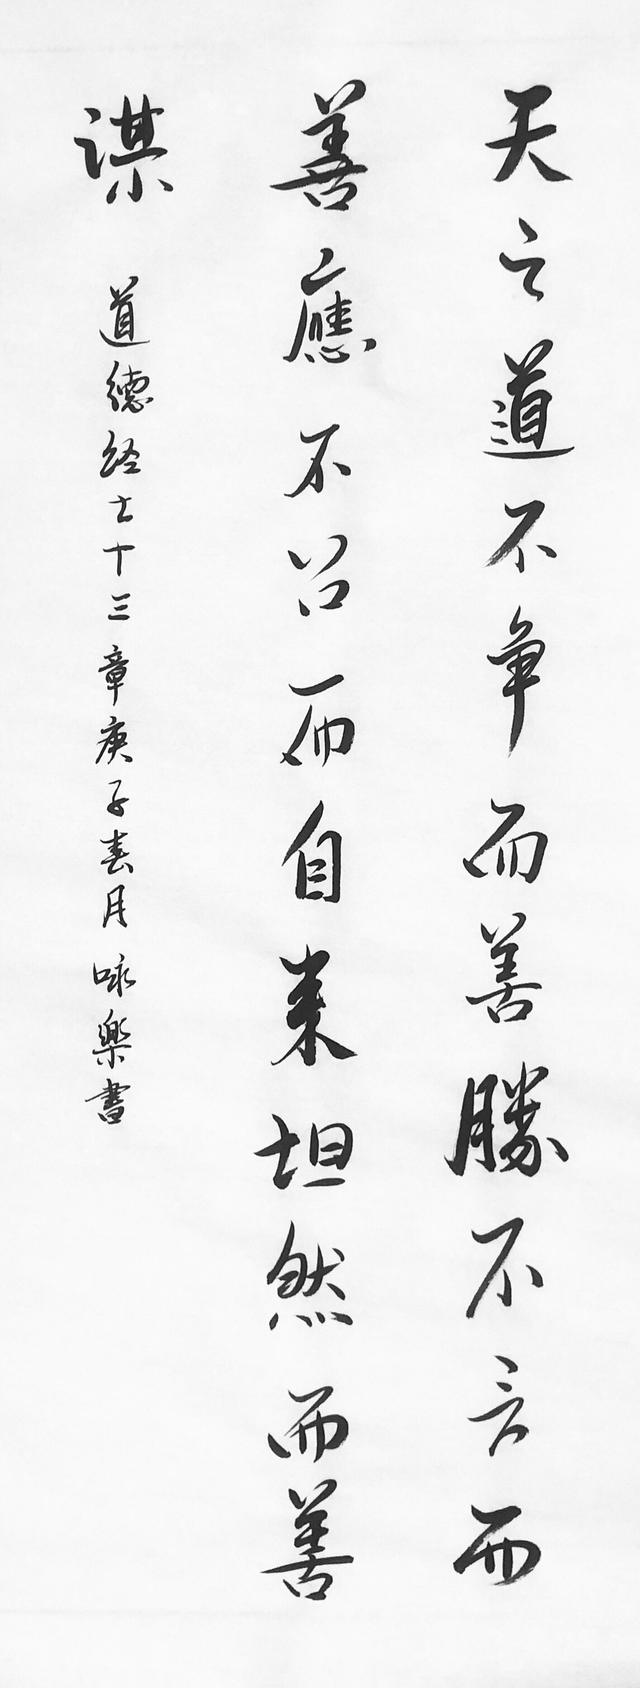 天之道不争而善勝不言而
善應不召而自来坦然而善
謀
道德经七十三章庚子春月咏樂書